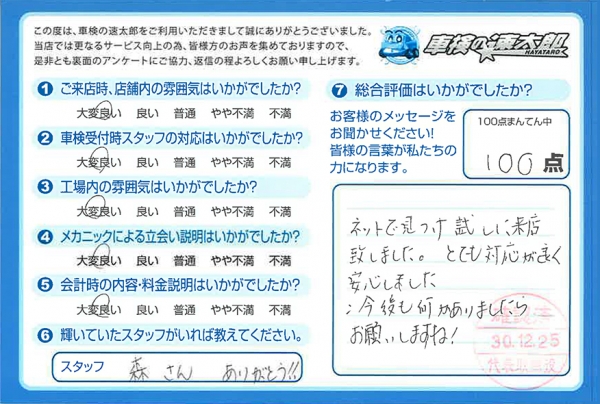 この度は、車検の速太郎をご利用いただきまして誠にありがとうございました。
当店では更なるサービス向上の為、皆様方のお声を集めておりますので、
是非とも裏面のアンケートにご協力、返信の程よろしくお願い申し上げます。
車検の速太郎
HAYATARO
1 ご来店時、店舗内の雰囲気はいかがでしたか?
大変良い 良い 普通 やや不満 不満
2 車検受付時スタッフの対応はいかがでしたか?
大変良い 良い 普通 やや不満 不満
3 工場内の雰囲気はいかがでしたか?
大変良い 良い 普通 やや不満 不満
4 メカニックによる立会い説明はいかがでしたか?
大変良い 良い 普通 やや不満 不満
5 会計時の内容・料金説明はいかがでしたか?
大変良い 良い 普通 やや不満 不満
6 輝いていたスタッフがいれば教えてください。
スタッフ 森さん ありがとう!!
7 総合評価はいかがでしたか?
お客様のメッセージを
お聞かせください!
皆様の言葉が私たちの
力になります。
100点まんてん中
100 点
ネットで見つけ試しに来店
致しました。とても対応が良く
安心しました
今後も何かありましたら
お願いしますね!
30.12.25
代表取締役